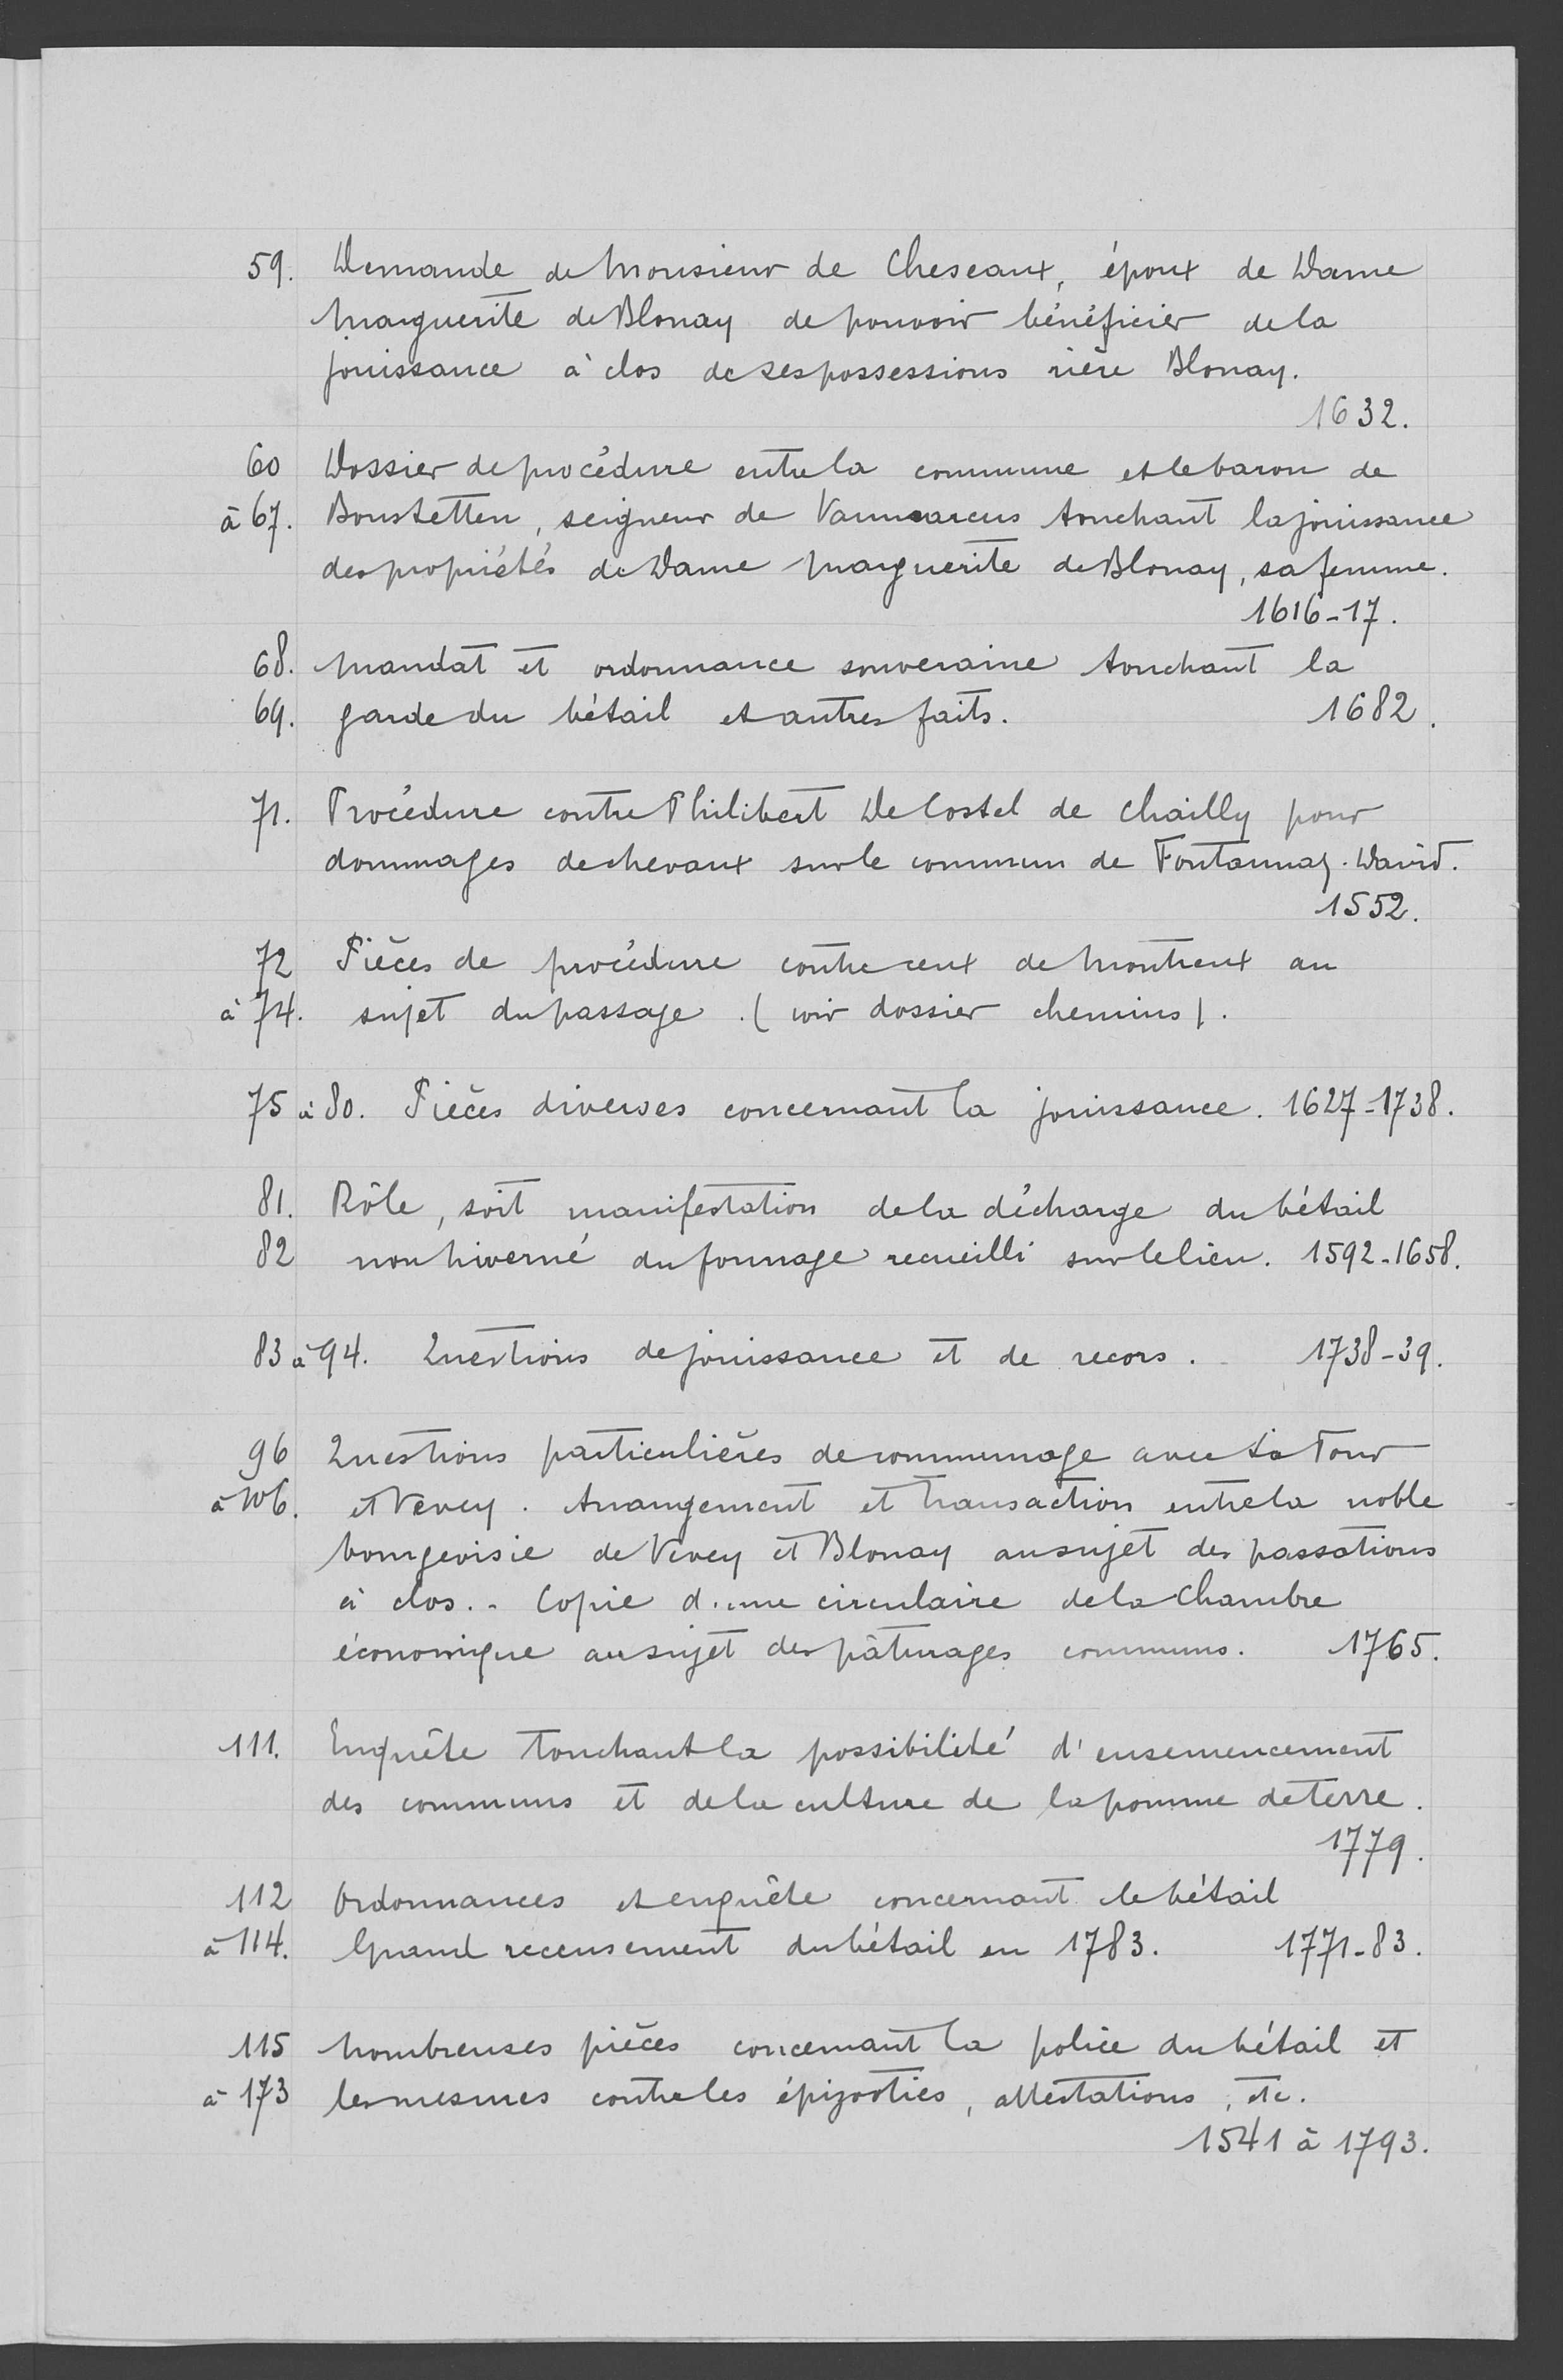 59. Demande de Monsieur de Cheseaux, époux de Dame
Marguerite de Blonay de pouvoir bénéficier de la
jouissance à clos de ses possessions rière Blonay.
1632.
60 Dossier de procédure entre la commune et le baron de
à 67. Bonstetten, seigneur de Vaumarcus touchant la jouissance
des propriétés de Dame Marguerite de Blonay, sa femme.
1616-17.
68. Mandat et ordonnance souveraine touchant la
69. garde du bétail et autres faits. 1682.
71. Procédure contre Philibert De Costel de Chailly pour
dommages de chevaux sur le commun de Fontannaz-David.
1552.
72 Pièces de procédure contre ceux de Montreux au
à 74. sujet du passage. (voir dossier chemins).
75 à 80. Pièces diverses concernant la jouissance. 1627-1738.
81. Rôle, soit manifestation de la décharge du bétail
82 non hiverné du fourrage recueilli sur le lieu. 1592-1658.
83 à 94. Questions de jouissance et de recors. 1738-39.
96 Questions particulières de communage avec La Tour
à 106. et Vevey. Arrangement et transaction entre la noble
bourgeoisie de Vevey et Blonay au sujet des passations
à clos.- Copie d'une circulaire de la Chambre
économique au sujet des pâturages communs. 1765.
111. Enquête touchant la possibilité d'ensemencement
des communs et de la culture de la pomme de terre.
1779.
112 Ordonnances et enquête concernant le bétail
à 114. Grand recensement du bétail en 1783. 1771-83.
115 Nombreuses pièces concernant la police du bétail et
à 173 les mesures contre les épizooties, attestations, etc.
1541 à 1793.